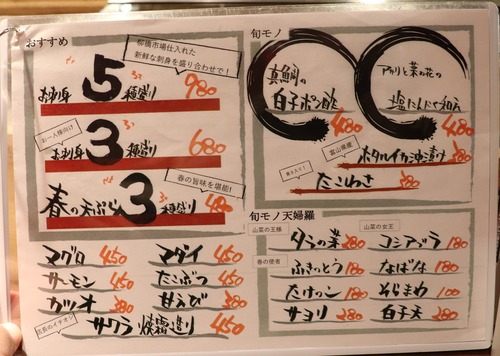 おすすめ
柳橋市場仕入れた
新鮮な刺身を盛り合わせで!
お刺身5種盛り 980
お一人様向け
お刺身3種盛り 680
春の旨味を堪能!
春の天ぷら3種盛り 480
マグロ 450
サーモン 450
カツオ 380
店長のイチオシ
サワラ焼霜造り 450
マダイ 450
たこぶつ 450
甘えび 380
旬モノ
真鯛の
白子ポン酢 480
アサリと菜の花の
塩にんにく和え 480
富山県産
ホタルイカ沖漬け 380
たこわさ 380
旬モノ天婦羅
山菜の王様
タラの芽 280
春の使者
ふきのとう 180
たけのこ 180
サヨリ 280
山菜の女王
コシアブラ 180
なばな 180
そらまめ 100
白子天 280